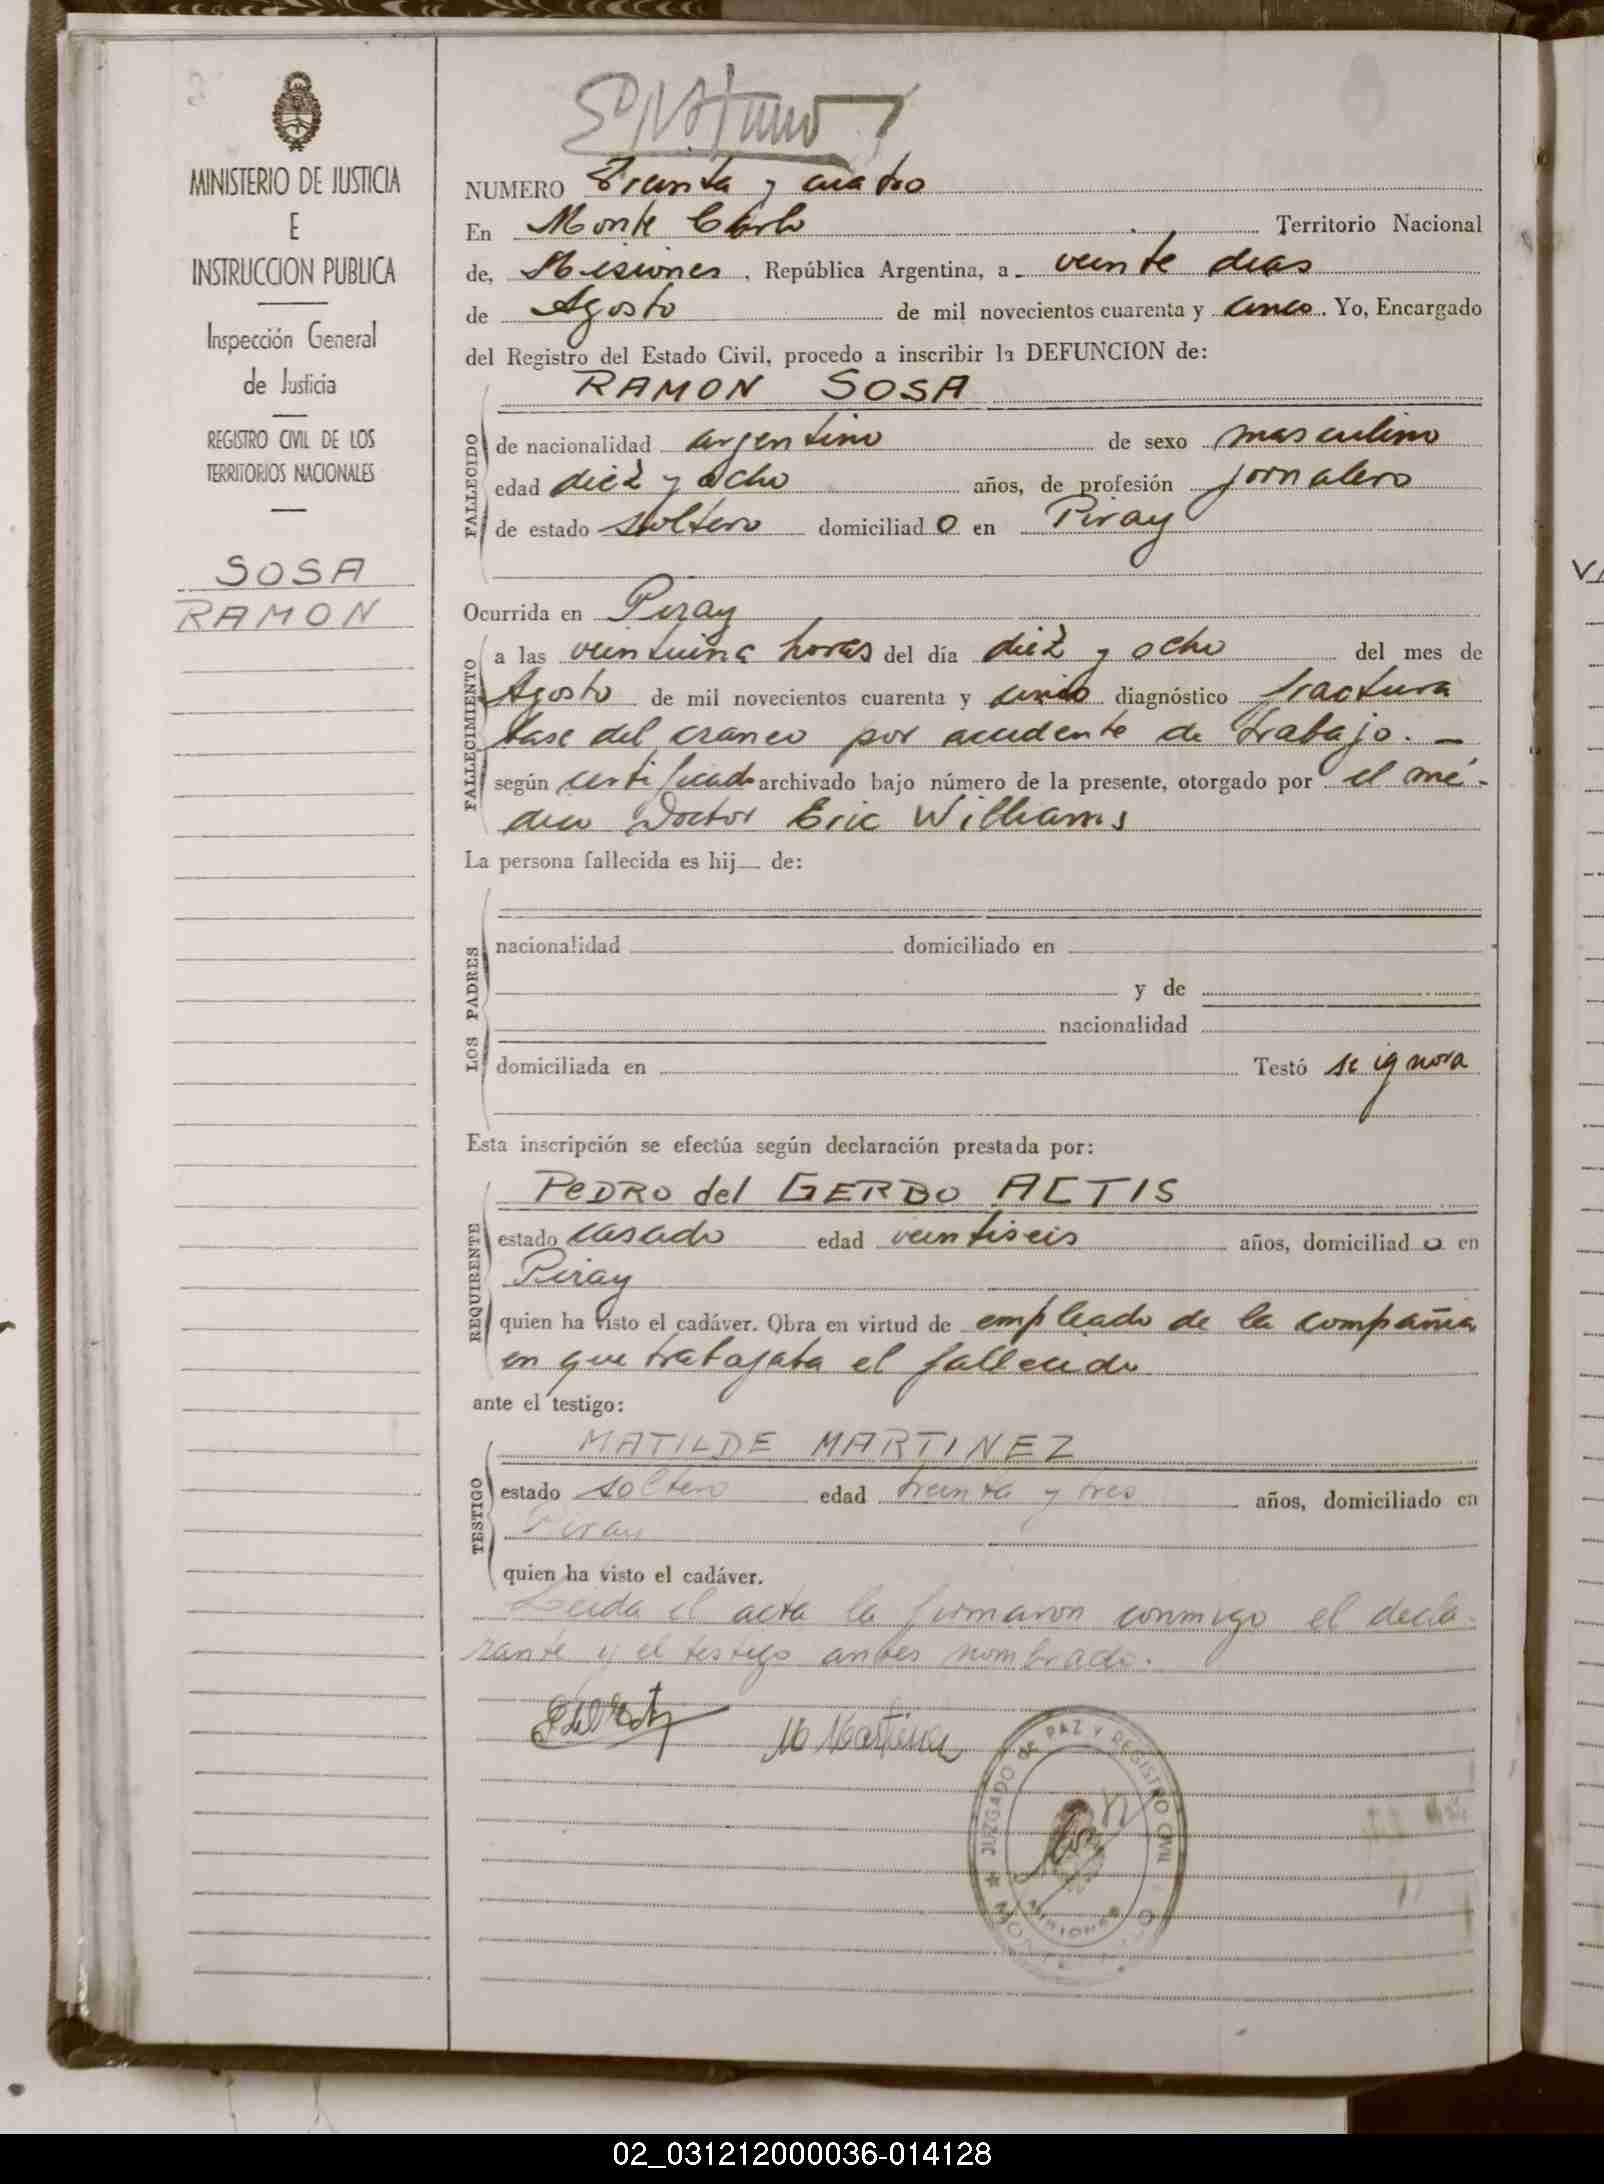 MINISTERIO DE JUSTICIA
E
INSTRUCCION PUBLICA
Inspección General
de Justicia
REGISTRO CIVIL DE LOS
TERRITORIOS NACIONALES
SOSA
RAMON
NUMERO Treinta y cuatro
En Monte Carlo Territorio Nacional
de, Misiones, República Argentina, a veinte dias
de Agosto de mil novecientos cuarenta y cinco. Yo, Encargado
del Registro del Estado Civil, procedo a inscribir la DEFUNCION de:
RAMON SOSA
FALLECIDO
de nacionalidad argentino de sexo masculino
edad diez y ocho años, de profesión jornalero
de estado soltero domiciliado en Piray
Ocurrida en Piray
FALLECIMIENTO
a las veintiuna horas del día diez y ocho del mes de
Agosto de mil novecientos cuarenta y cinco diagnóstico fractura
base del craneo por accidente de trabajo. -
según certificado archivado bajo número de la presente, otorgado por el mé-
dico Doctor Eric Williams
La persona fallecida es hij de:
LOS PADRES
nacionalidad domiciliado en
y de
nacionalidad
domiciliada en Testó se ignora
Esta inscripción se efectúa según declaración prestada por:
PEDRO del GERBO ACTIS
REQUIRENTE
estado casado edad veintiseis años, domiciliado en
Piray
quien ha visto el cadáver. Obra en virtud de empleado de la compañia
en que trabajaba el fallecido
ante el testigo:
MATILDE MARTINEZ
TESTIGO
estado soltero edad treinta y tres años, domiciliado en
Piray
quien ha visto el cadáver.
Leida el acta la firmaron conmigo el decla-
rante y el testigo antes nombrado.
M Martinez
JUZGADO DE PAZ Y REGISTRO CIVIL
MISIONES
02_031212000036-014128